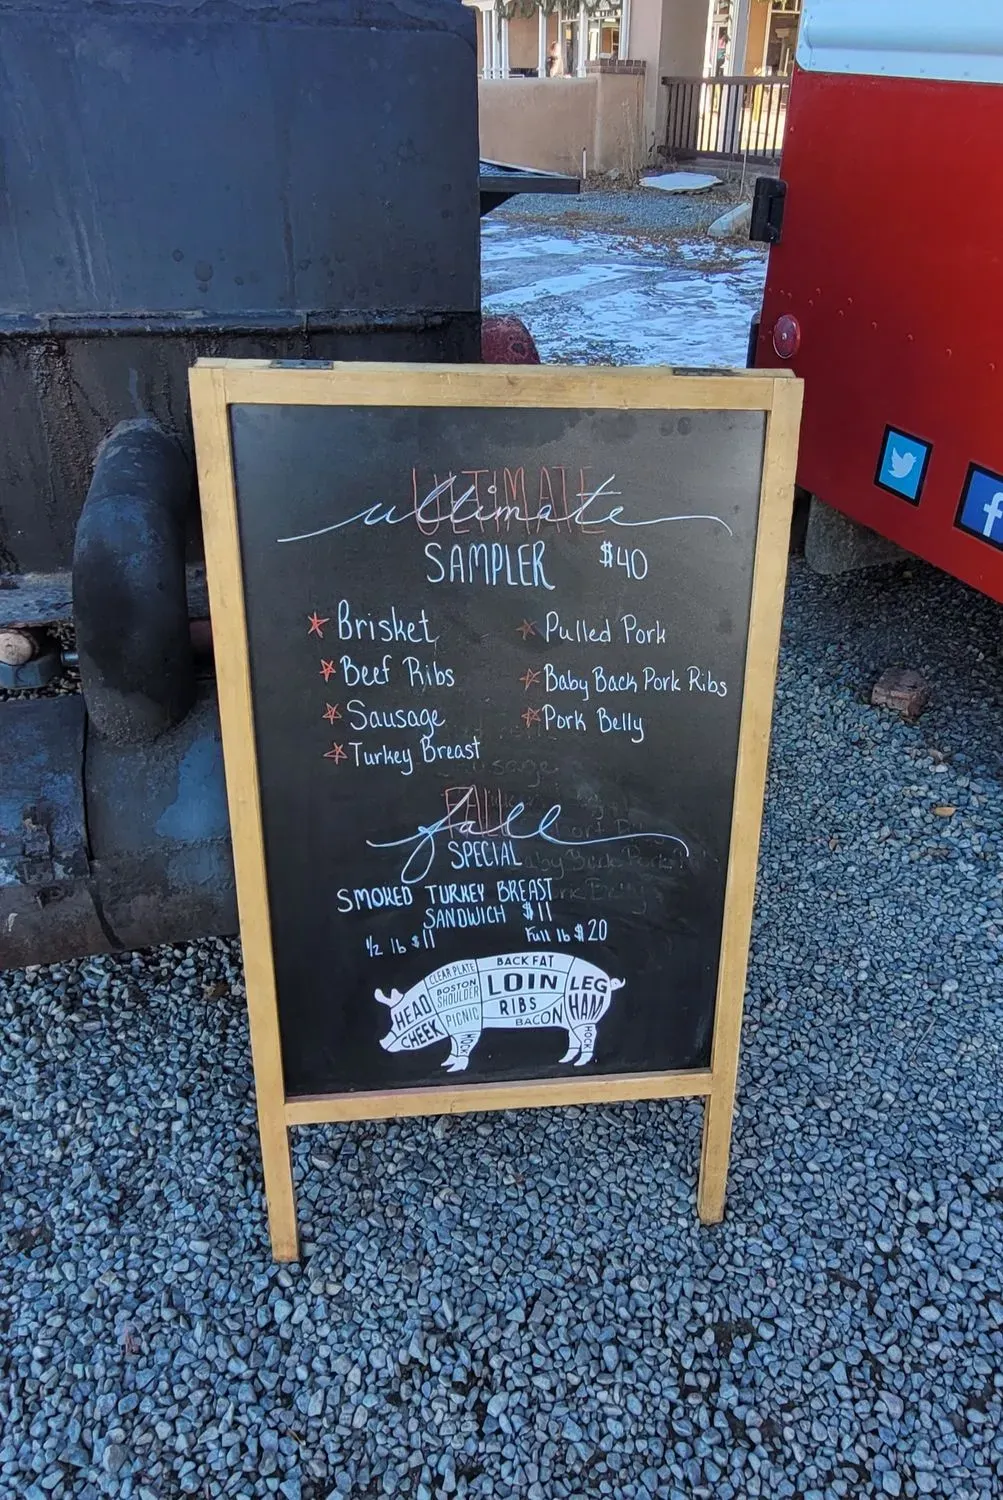 ULTIMATE
ultimate
SAMPLER $40
Brisket
Beef Ribs
Sausage
Turkey Breast
Pulled Pork
Baby Back Pork Ribs
Pork Belly
FALL
fall
SPECIAL
SMOKED TURKEY BREAST
SANDWICH $11
1/2 lb $11 Full lb $20
HEAD
CHEEK
CLEAR PLATE
BOSTON
SHOULDER
PICNIC
HOCK
BACK FAT
LOIN
RIBS
BACON
LEG
HAM
HOCK
f